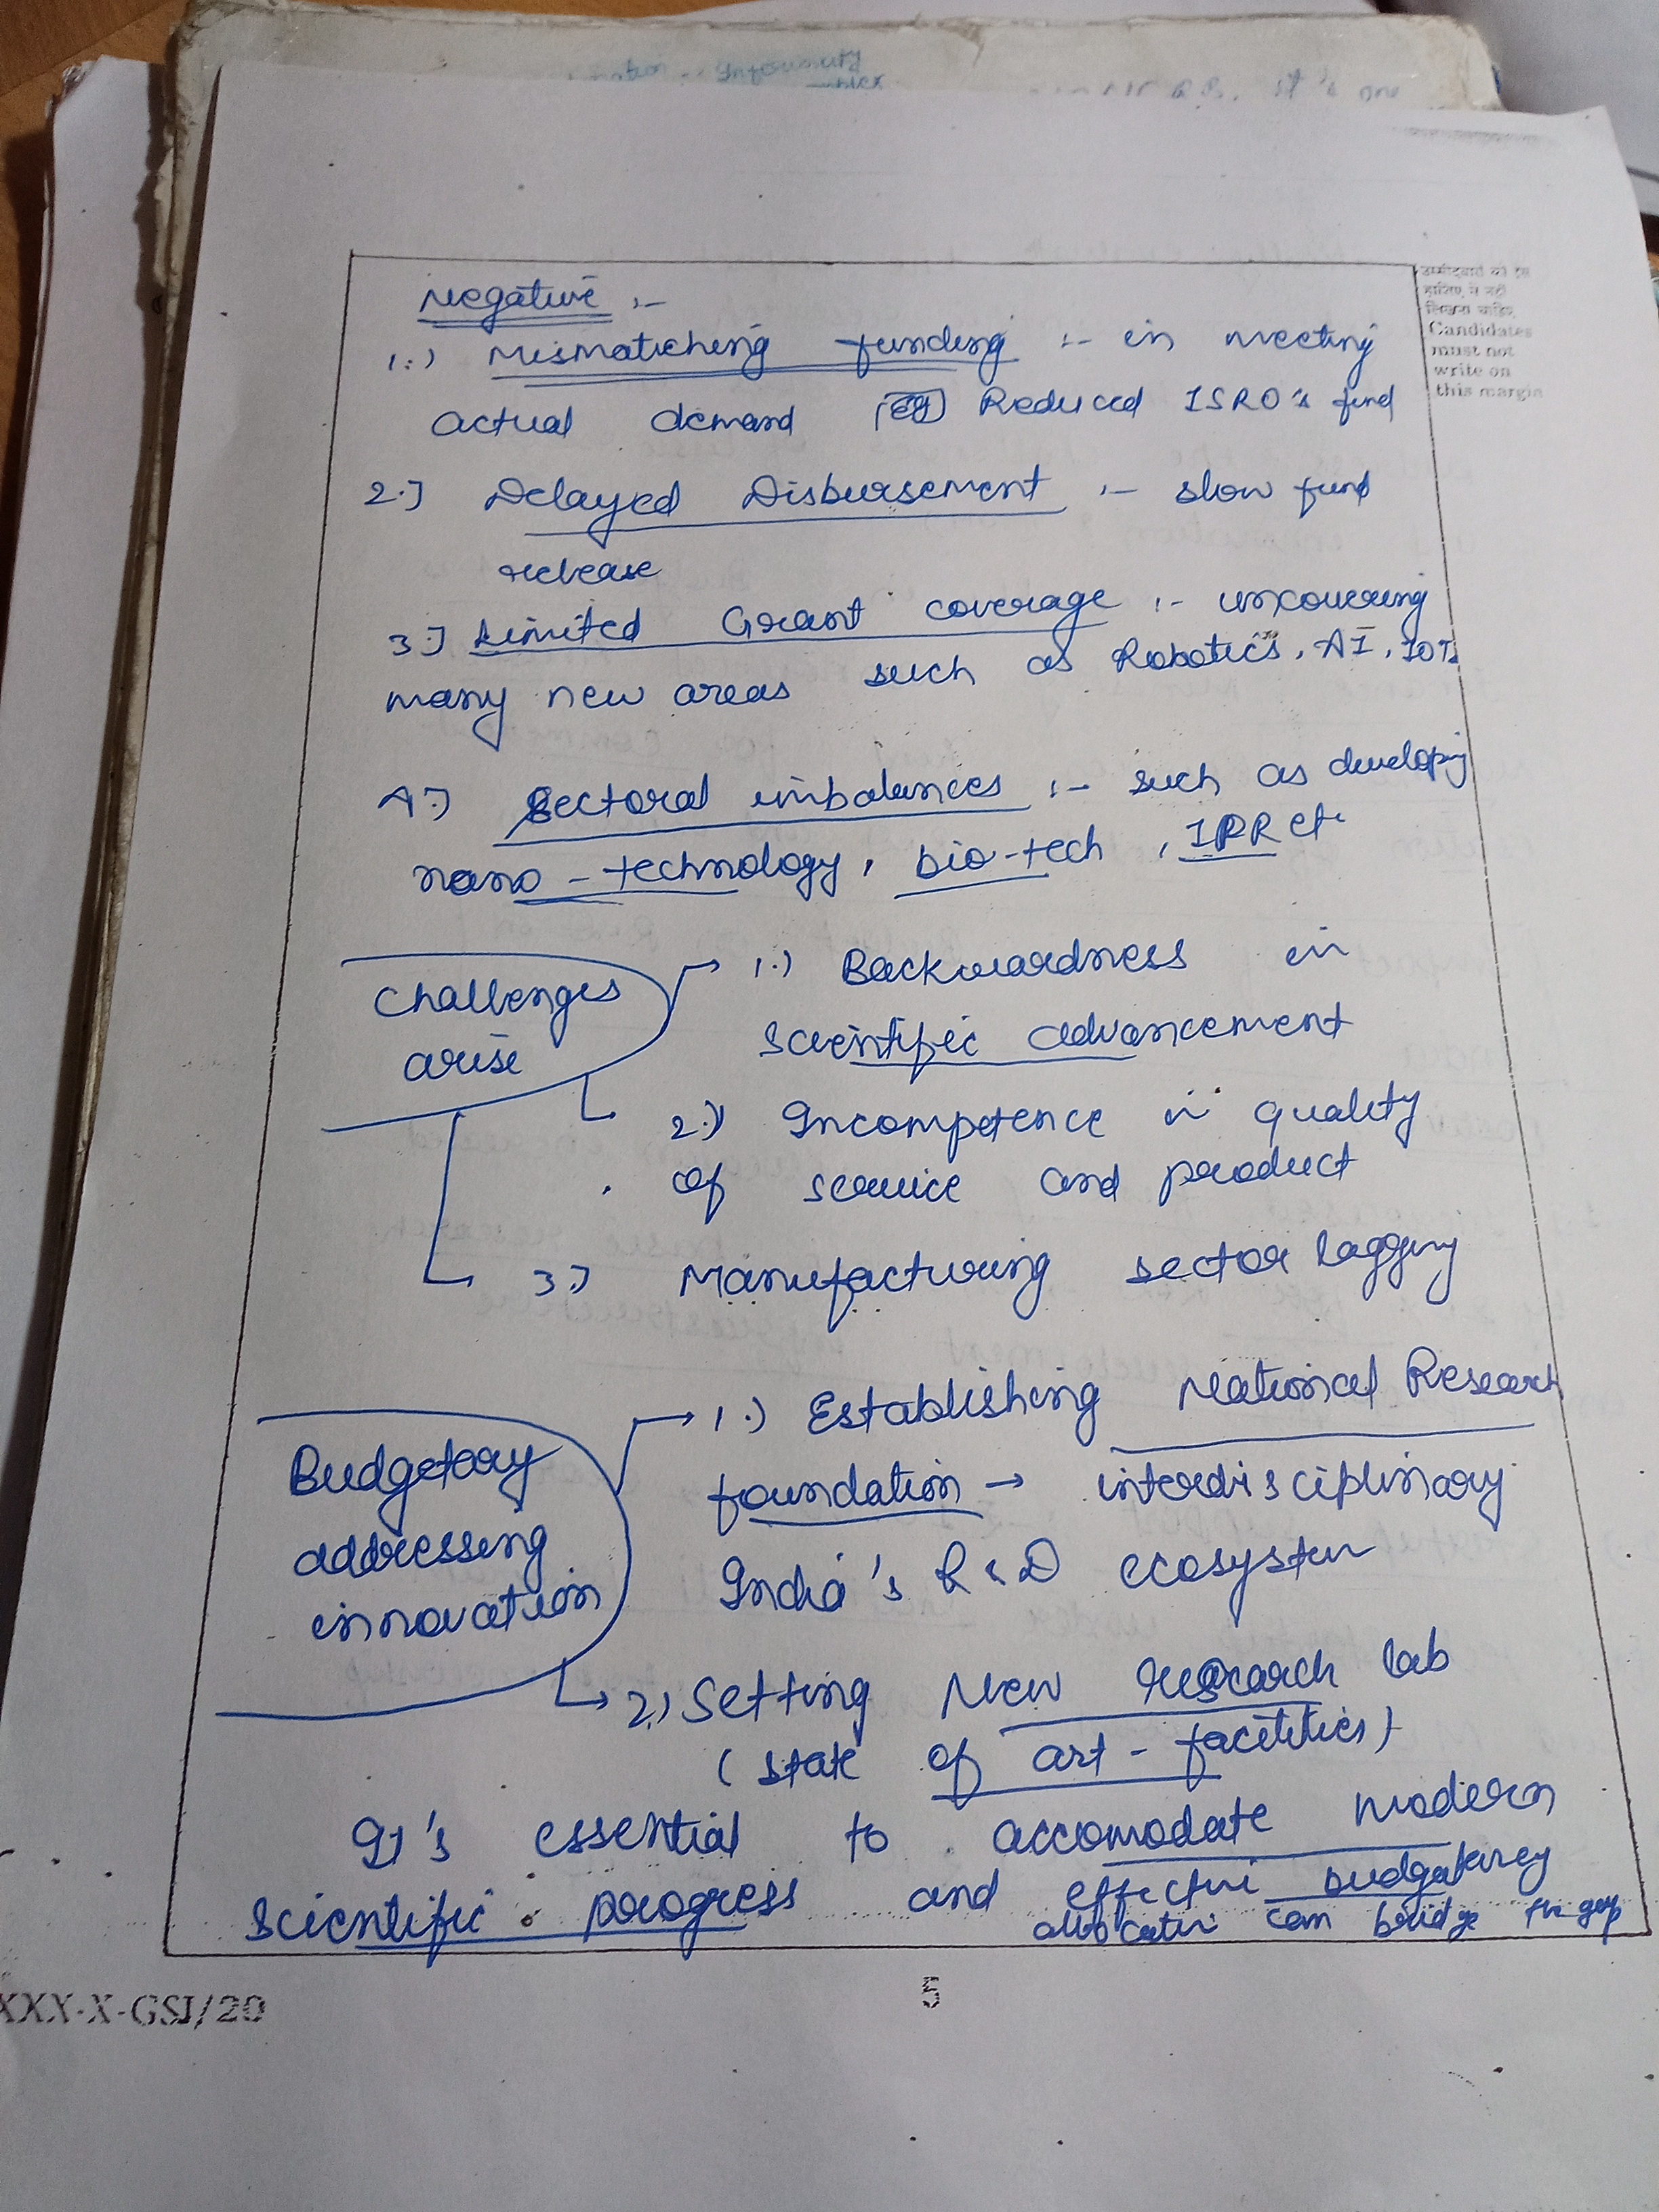 Informity
it's one
उम्मीदवारों को इस
हाशिए में नहीं
लिखना चाहिए
Candidates
must not
write on
this margin
Negative :-
1.) Mismatching funding :- in meeting
actual demand (eg) Reduced ISRO's fund
2.] Delayed Disbursement :- slow fund
release
3.] Limited Grant coverage :- uncovering
many new areas such as Robotics, AI, IOTs
4.] Sectoral imbalances :- such as developing
nano-technology, bio-tech, IPR etc
Challenges
arise
1.) Backwardness in
scientific advancement
2.) Incompetence in quality
of service and product
3.) Manufacturing sector lagging
Budgetary
addressing
innovation
1.) Establishing National Research
foundation → interdisciplinary
India's R&D ecosystem
2.) Setting New research lab
(state of art-facilities)
It's essential to accomodate modern
scientific progress and effective budgetary
allocation can bridge the gap
XXX-X-GSI/20
5